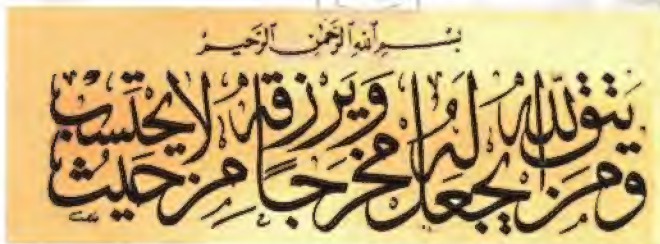 بسم الله الرحمن الرحيم
ومن يتق الله يجعل له مخرجا ويرزقه من حيث لا يحتسب